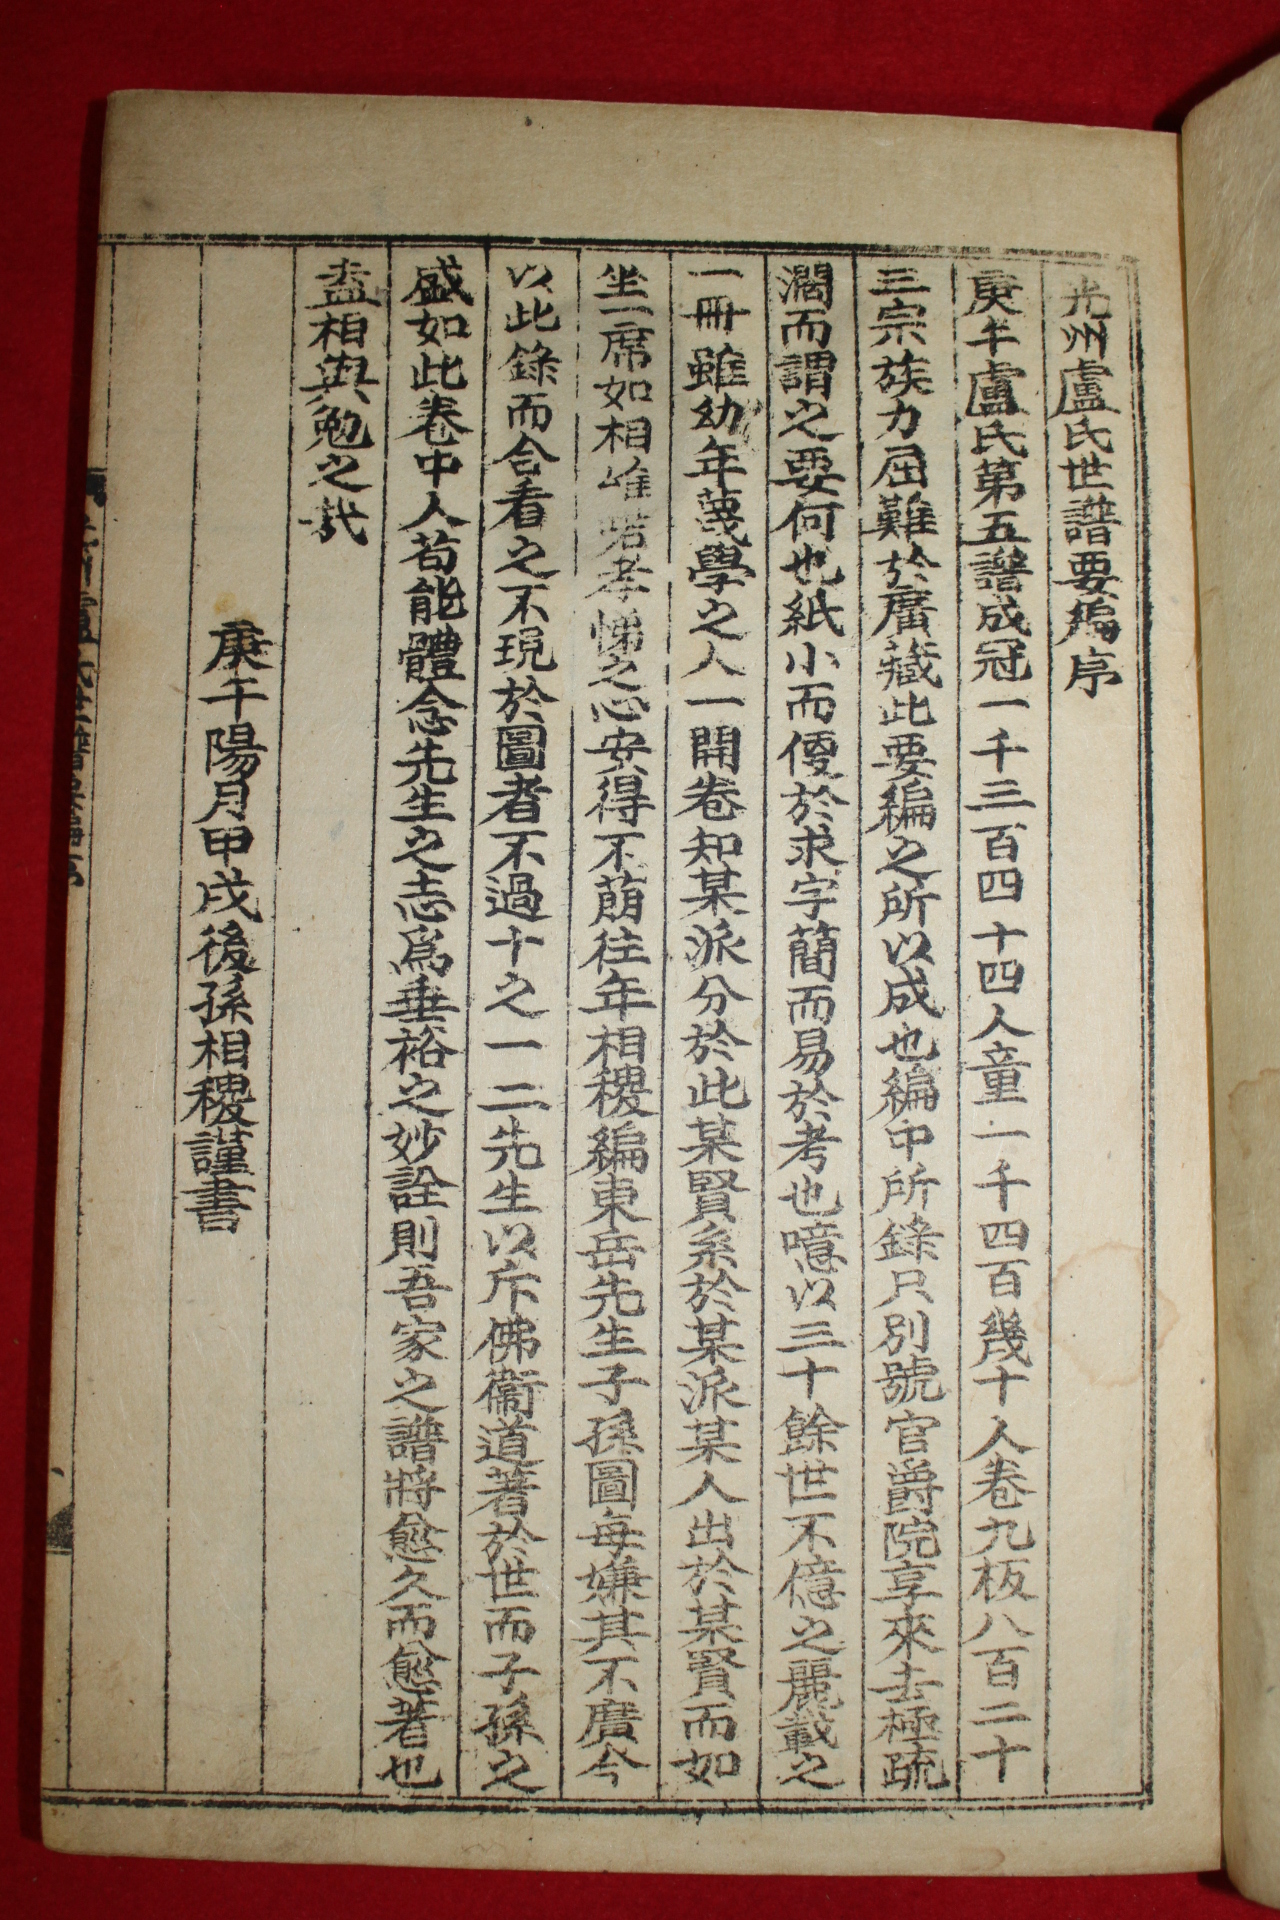 光州盧氏世譜要編序
庚午盧氏第五譜成冠一千三百四十四人童一千四百幾十人卷九板八百二十
三宗族力屈難於廣藏此要編之所以成也編中所錄只別號官爵院享來去極疏
濶而謂之要何也紙小而便於求字簡而易於考也噫以三十餘世不億之麗載之
一冊雖幼年蔑學之人一開卷知某派分於此某賢系於某派某人出於某賢而如
坐一席如相唯喏孝悌之心安得不萠往年相稷編東岳先生子孫圖每嫌其不廣今
以此錄而合看之不現於圖者不過十之一二先生以斥佛衞道著於世而子孫之
盛如此卷中人苟能體念先生之志爲垂裕之妙詮則吾家之譜將愈久而愈著也
盍相與勉之哉
庚午陽月甲戌後孫相稷謹書
光州盧氏世譜要編序